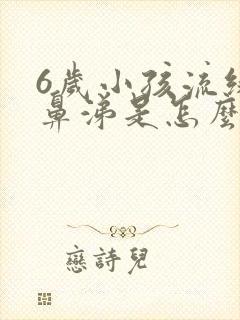 6歲小孩流
鼻涕是怎麼
戀詩兒